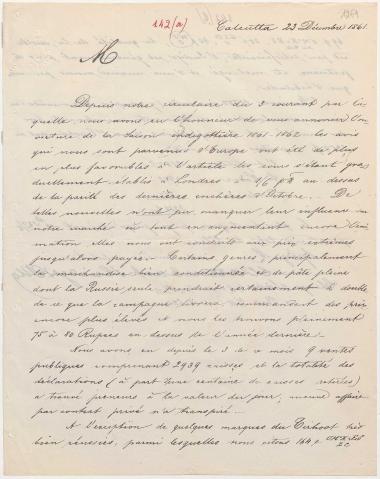 142(a)
Calcutta 23 Décembre 1861.
M
Depuis notre circulaire du 3 courant par la
quelle nous avons eu l'honneur de vous annoncer l'ou
verture de la saison indigotière 1861-1862. les avis
qui nous sont parvenus d'Europe ont été de plus
en plus favorables à l'article les cours s'étant gra
duellement établis à Londres à 1/6 au dessus
de la parité des dernières enchères d'Octobre. De
telles nouvelles n'ont pu manquer leur influence sur
notre marché où tout en augmentant encore l'ani
mation elles nous ont conduits aux prix extrêmes
jusqu'alors payés. Certains genres, principalement
la marchandise bien conditionnée et de pâte pleine
dont la Russie seule prendrait certainement le double
de ce que la campagne livrera commandent des prix
encore plus élevés et nous les trouvons pleinement
75 à 80 Rupees en dessus de l'année dernière.
Nous avons eu depuis le 3 de ce mois 9 ventes
publiques comprenant 2939 caisses et la totalité des
déclarations (à part une centaine de caisses retirées)
a trouvé preneurs à la valeur du jour, aucune affaire
par contrat privé n'a transpiré.
A l'exception de quelques marques du Tirhoot très
bien réussies, parmi lesquelles nous citons 164